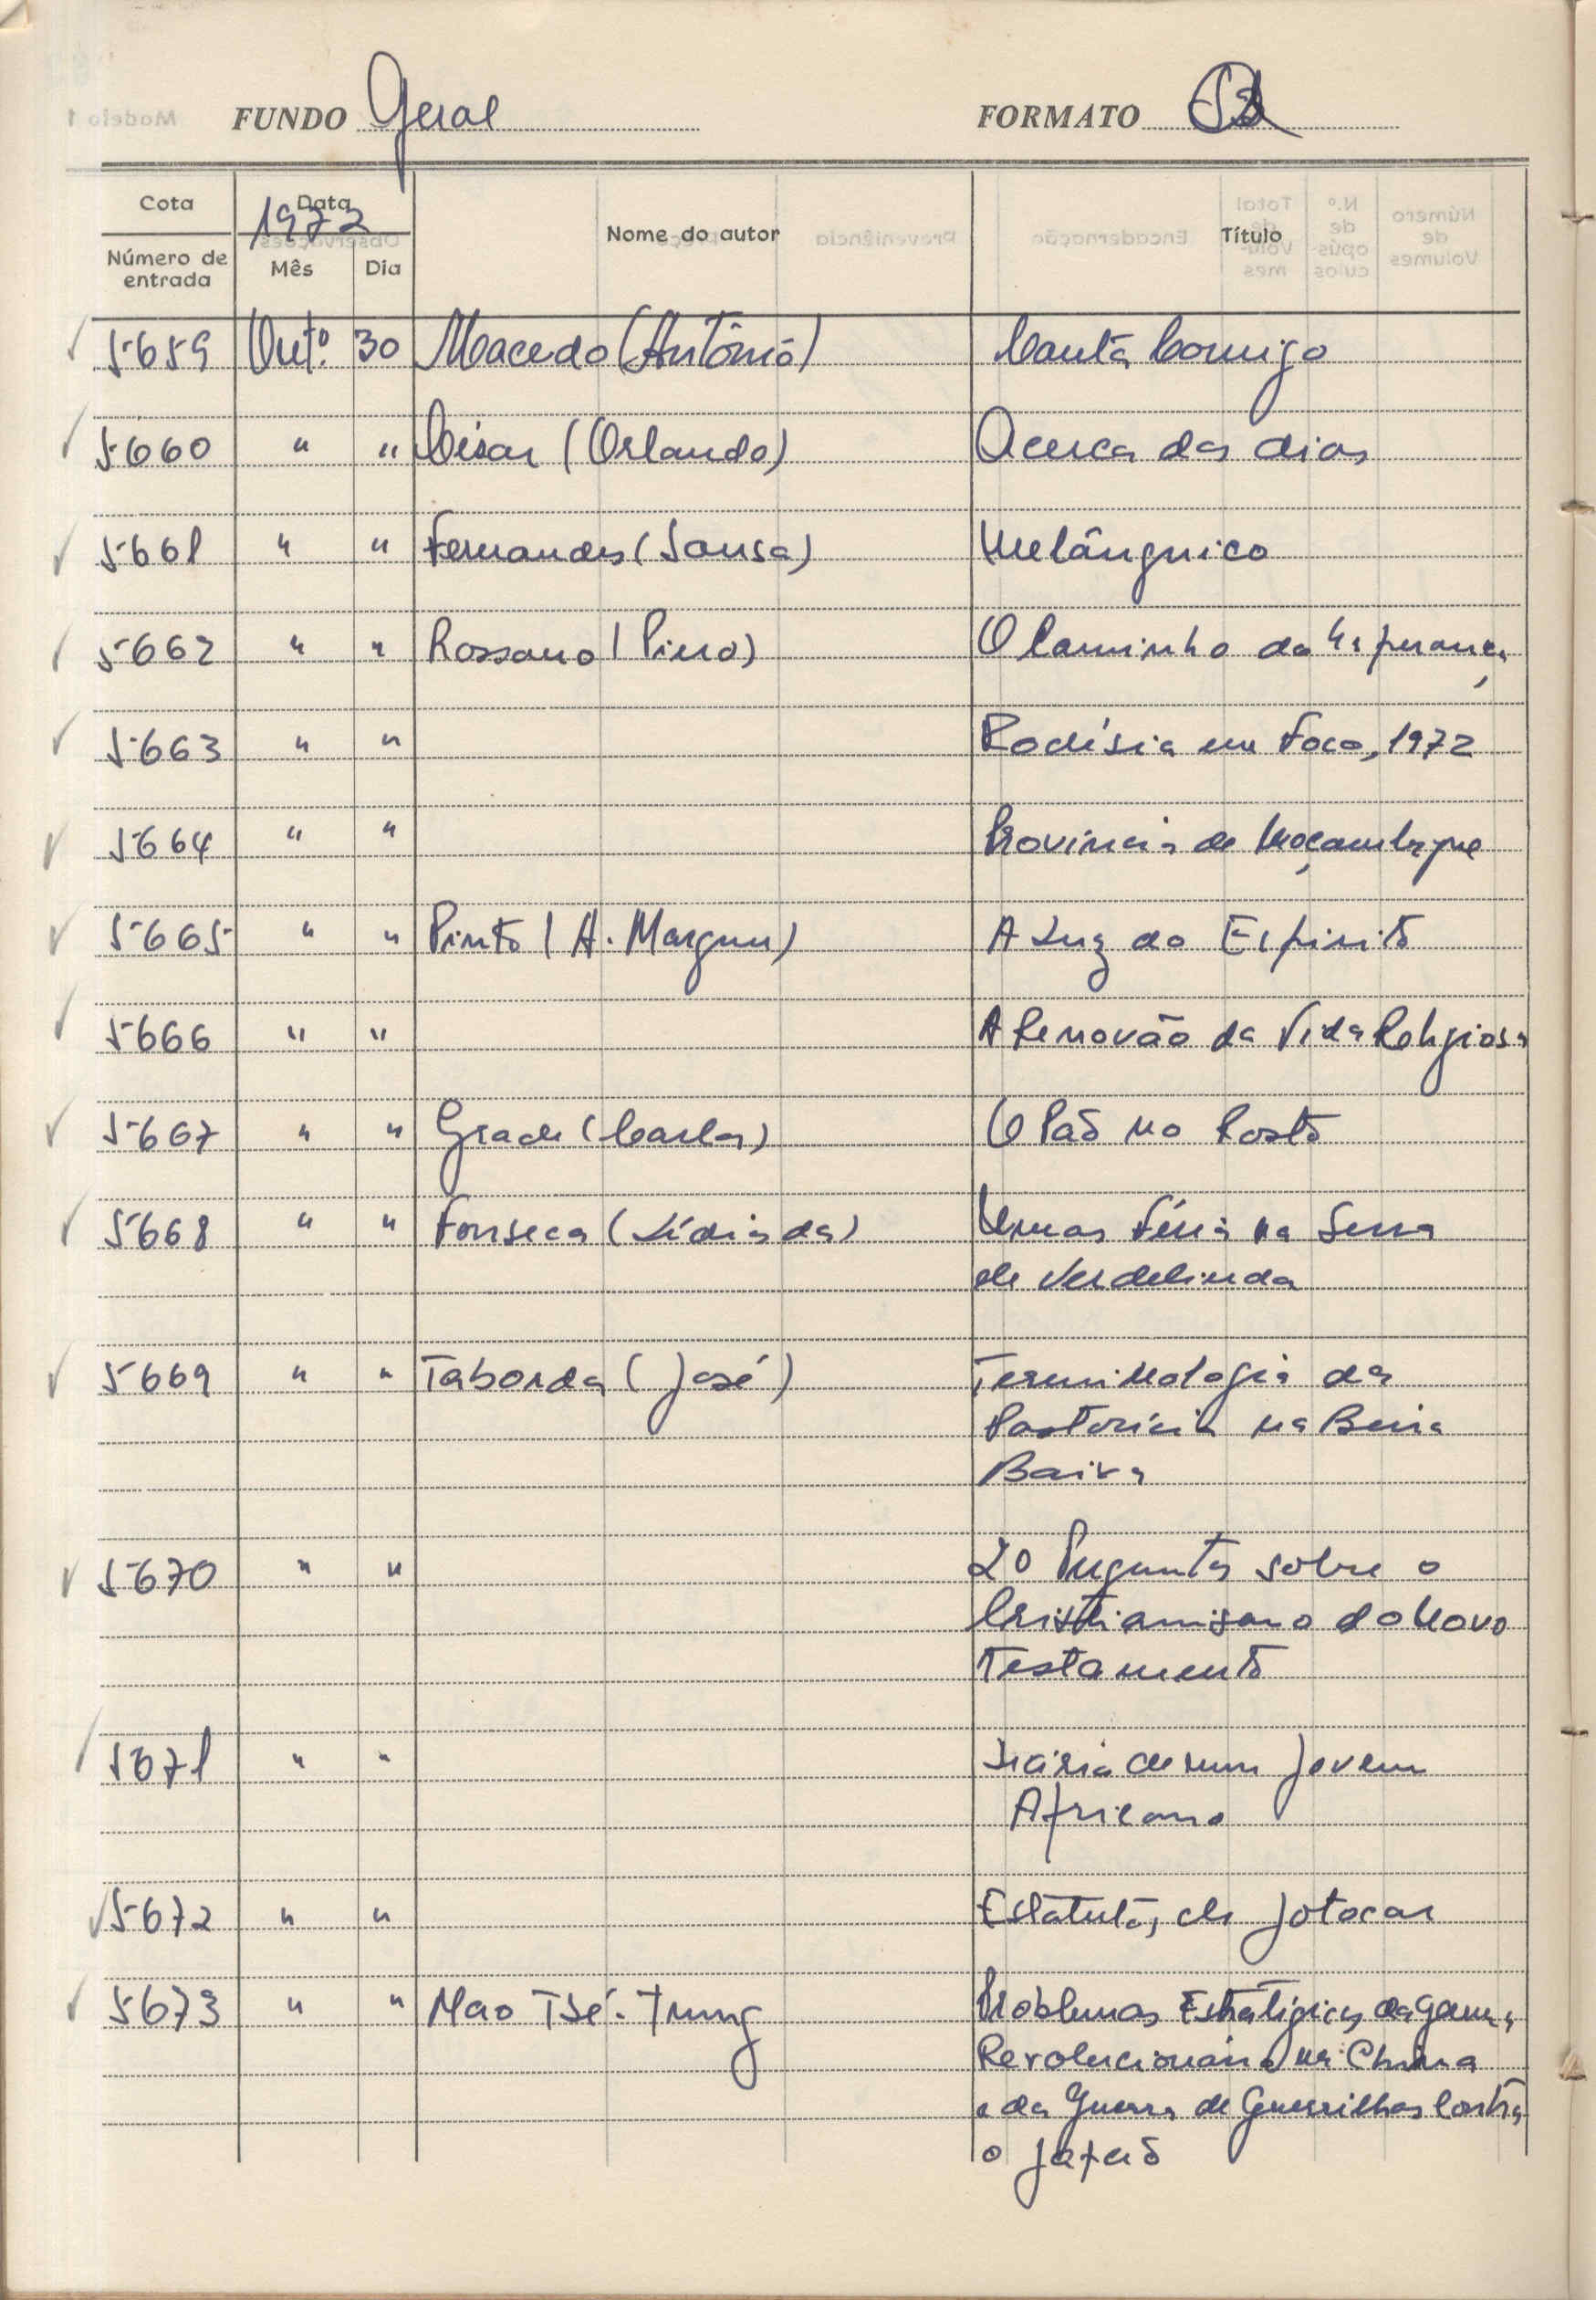 FUNDO Geral FORMATO
Cota Data Nome do autor Título
1972
Número de entrada Mês Dia
5659 Outº. 30 Macedo (António) Canta Comigo
5660 " " César (Orlando) Acerca das dias
5661 " " Fernandes (Sousa)
5662 " " Rossano (Piero) O Caminho da Esperança
5663 " " Rodésia em Foco, 1972
5664 " " Província de Moçambique
5665 " " Pinto (A. Marques) A Luz do Espirito
5666 " " A Renovão da Vida Religiosa
5667 " " Grade (Carlos) O Pão no Rosto
5668 " " Fonseca (Lídia da) Umas Féria na Serra
de Verdelinda
5669 " " Taborda (José) Terminologia da
Pastorícia na Beira
Baixa
5670 " " 20 Perguntas sobre o
Cristianismo do Novo
Testamento
5671 " " Diário de um Jovem
Africano
5672 " " Estatutos de Jotocar
5673 " " Mao Tsé-Tung Problemas Estratégicos da Guerra
Revolucionária na China
e da Guerra de Guerrilhas Contra
o Japão